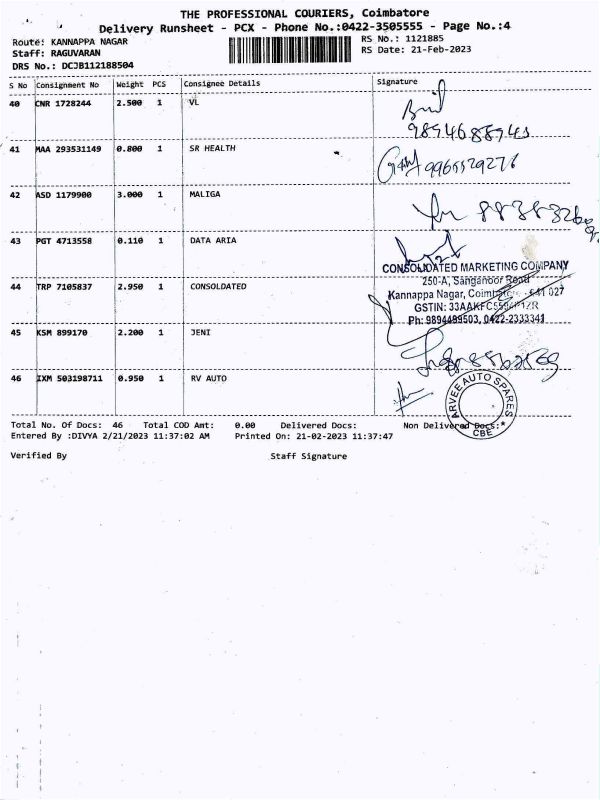 THE PROFESSIONAL COURIERS, Coimbatore
Delivery Runsheet - PCX - Phone No.:0422-3505555 - Page No.:4
Route: KANNAPPA NAGAR
RS No.: 1121885
Staff: RAGUVARAN
RS Date: 21-Feb-2023
DRS No.: DCJB112188504
S No Consignment No Weight PCS Consignee Details Signature
40 CNR 1728244 2.500 1 VL
9894688943
41 MAA 293531149 0.800 1 SR HEALTH
42 ASD 1179900 3.000 1 MALIGA
43 PGT 4713558 0.110 1 DATA ARIA
CONSOLIDATED MARKETING COMPANY
250-A, Sanganoor Road
44 TRP 7105837 2.950 1 CONSOLDATED
Kannappa Nagar, 641 027
GSTIN:
Ph: 9894489503, 0422-2333341
45 KSM 899170 2.200 1 JENI
46 IXM 503198711 0.950 1 RV AUTO
ARVEE AUTO SPARES
CBE
Total No. Of Docs: 46 Total COD Amt: 0.00 Delivered Docs: Non Delivered Docs:*
Entered By :DIVYA 2/21/2023 11:37:02 AM Printed On: 21-02-2023 11:37:47
Verified By Staff Signature